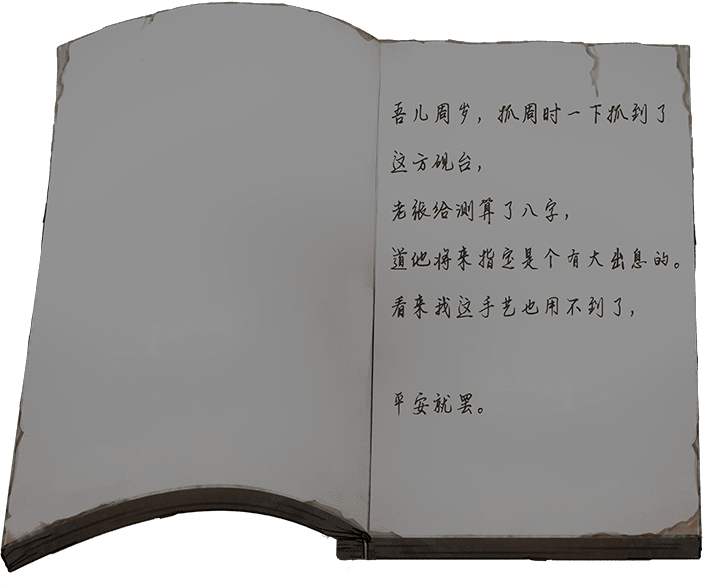 吾儿周岁，抓周时一下抓到了
这方砚台，
老张给测算了八字，
道他将来指定是个有大出息的。
看来我这手艺也用不到了，
平安就罢。